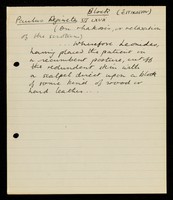 Block (Excision)
Paulus Aegineta VI LXVII
(On rhakosis, or relaxation
of the scrotum)
... Wherefore Leonides,
having placed the patient in
a recumbent posture, cut off
the redundant skin with
a scalpel direct upon a block
of some kind of wood or
hard leather...